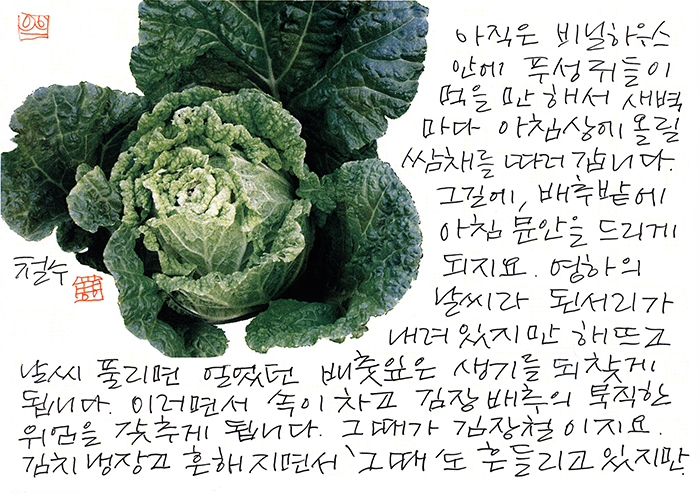 아직은 비닐하우스
안에 푸성귀들이
먹을 만 해서 새벽
마다 아침상에 올릴
쌈채를 따러 갑니다.
그길에, 배추밭에
아침 문안을 드리게
되지요. 영하의
날씨라 된서리가
내려 있지만 해뜨고
날씨 풀리면 얼었던 배춧잎은 생기를 되찾게
됩니다. 이러면서 속이 차고 김장배추의 묵직한
위엄을 갖추게 됩니다. 그때가 김장철이지요.
김치냉장고 흔해지면서 '그때'도 흔들리고 있지만
철수